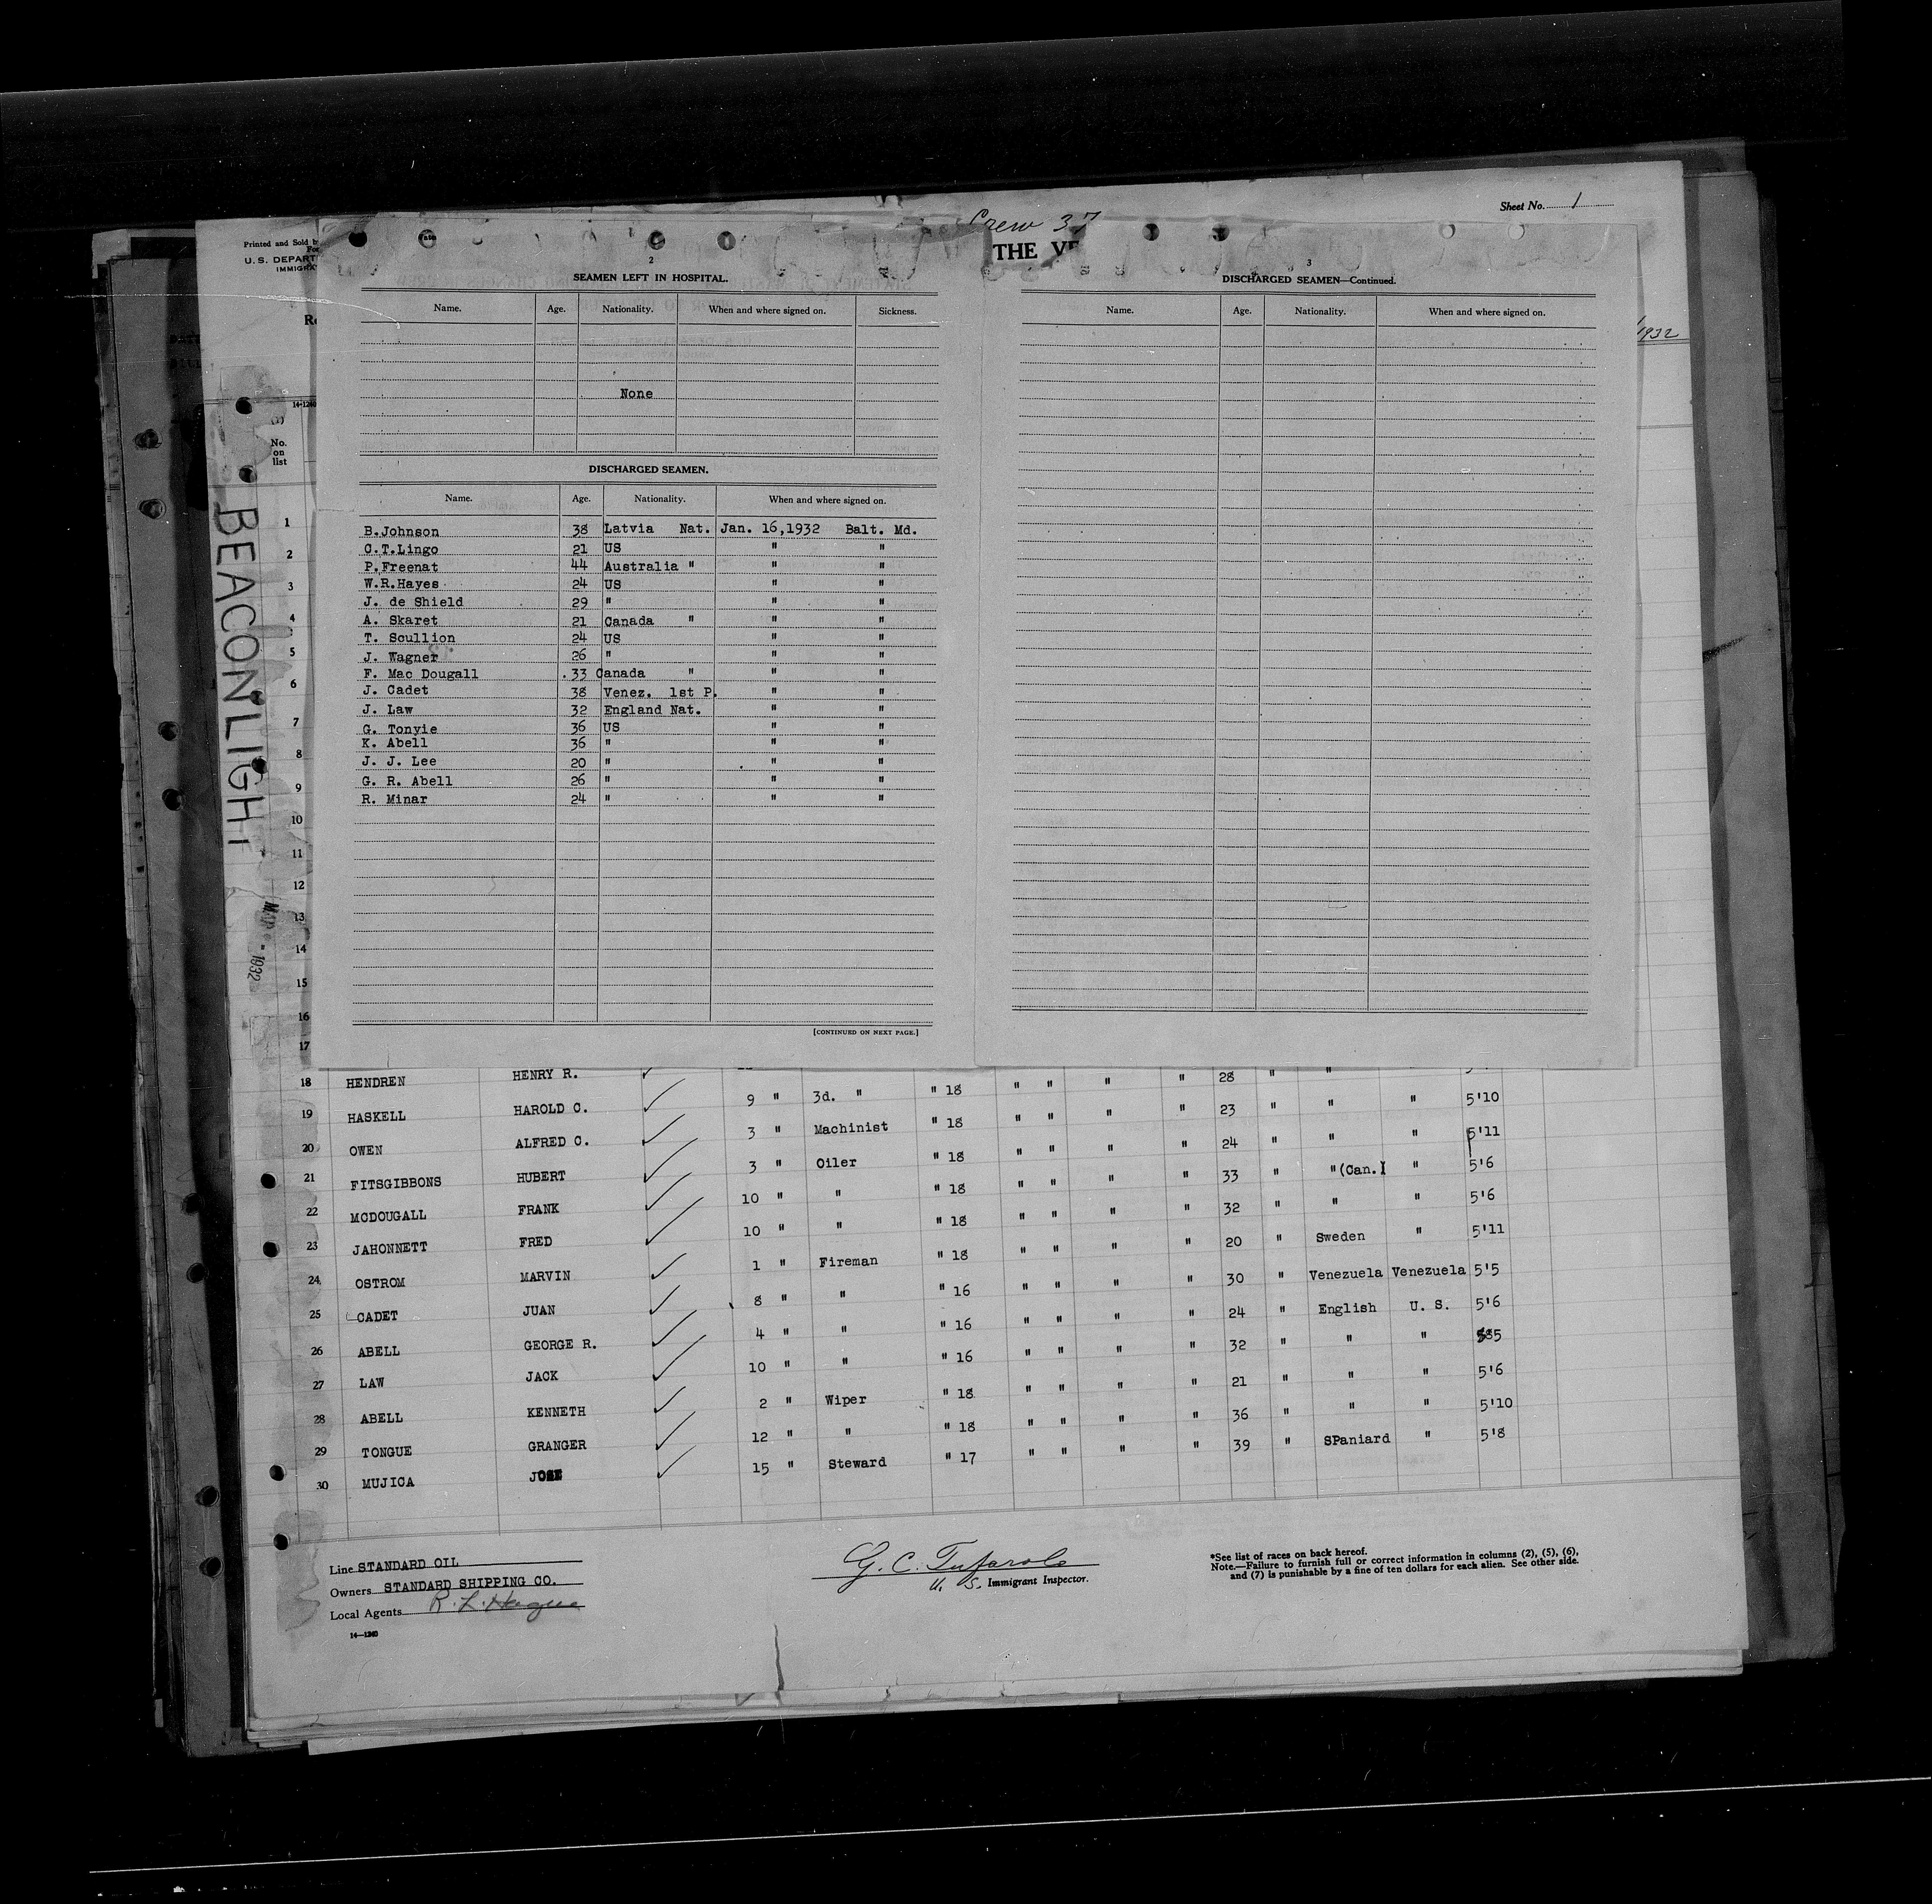 Crew 37
Sheet No. 1
Printed and Sold b
U. S. DEPART
IMMIGRA
THE VE
1932
14-1240
No.
on
list
BEACONLIGHT
1932
2
SEAMEN LEFT IN HOSPITAL.
Name. Age. Nationality. When and where signed on. Sickness.
None
DISCHARGED SEAMEN.
Name. Age. Nationality. When and where signed on.
B.Johnson 38 Latvia Nat. Jan. 16,1932 Balt. Md.
C.T.Lingo 21 US " "
P.Freenat 44 Australia " " "
W.R.Hayes 24 US " "
J. de Shield 29 " " "
A. Skaret 21 Canada " " "
T. Scullion 24 US " "
J. Wagner 26 " " "
F. Mac Dougall 33 Canada " " "
J. Cadet 38 Venez. 1st P. " "
J. Law 32 England Nat. " "
G. Tonyie 36 US " "
K. Abell 36 " " "
J. J. Lee 20 " " "
G. R. Abell 26 " " "
R. Minar 24 " " "
[CONTINUED ON NEXT PAGE.]
3
DISCHARGED SEAMEN—Continued.
Name. Age. Nationality. When and where signed on.
1
2
3
4
5
6
7
8
9
10
11
12
13
14
15
16
17
18 HENDREN HENRY R. 9 " 3d. " " 18 " " " " 28 " "
19 HASKELL HAROLD C. 3 " Machinist " 18 " " " " 23 " " " 5'10
20 OWEN ALFRED C. 3 " Oiler " 18 " " " " 24 " " " 5'11
21 FITSGIBBONS HUBERT 10 " " " 18 " " " " 33 " "(Can.) " 5'6
22 MCDOUGALL FRANK 10 " " " 18 " " " " 32 " " " 5'6
23 JAHONNETT FRED 1 " Fireman " 18 " " " " 20 " Sweden " 5'11
24 OSTROM MARVIN 8 " " " 16 " " " " 30 " Venezuela Venezuela 5'5
25 CADET JUAN 4 " " " 16 " " " " 24 " English U. S. 5'6
26 ABELL GEORGE R. 10 " " " 16 " " " " 32 " " " 5'5
27 LAW JACK 2 " Wiper " 18 " " " " 21 " " " 5'6
28 ABELL KENNETH 12 " " " 18 " " " " 36 " " " 5'10
29 TONGUE GRANGER 15 " Steward " 17 " " " " 39 " SPaniard " 5'8
30 MUJICA JOSE
Line STANDARD OIL
Owners STANDARD SHIPPING CO.
Local Agents R. L. Hague
14—1240
G. C. Tufarolo
U. S. Immigrant Inspector.
*See list of races on back hereof.
Note.—Failure to furnish full or correct information in columns (2), (5), (6),
and (7) is punishable by a fine of ten dollars for each alien. See other side.